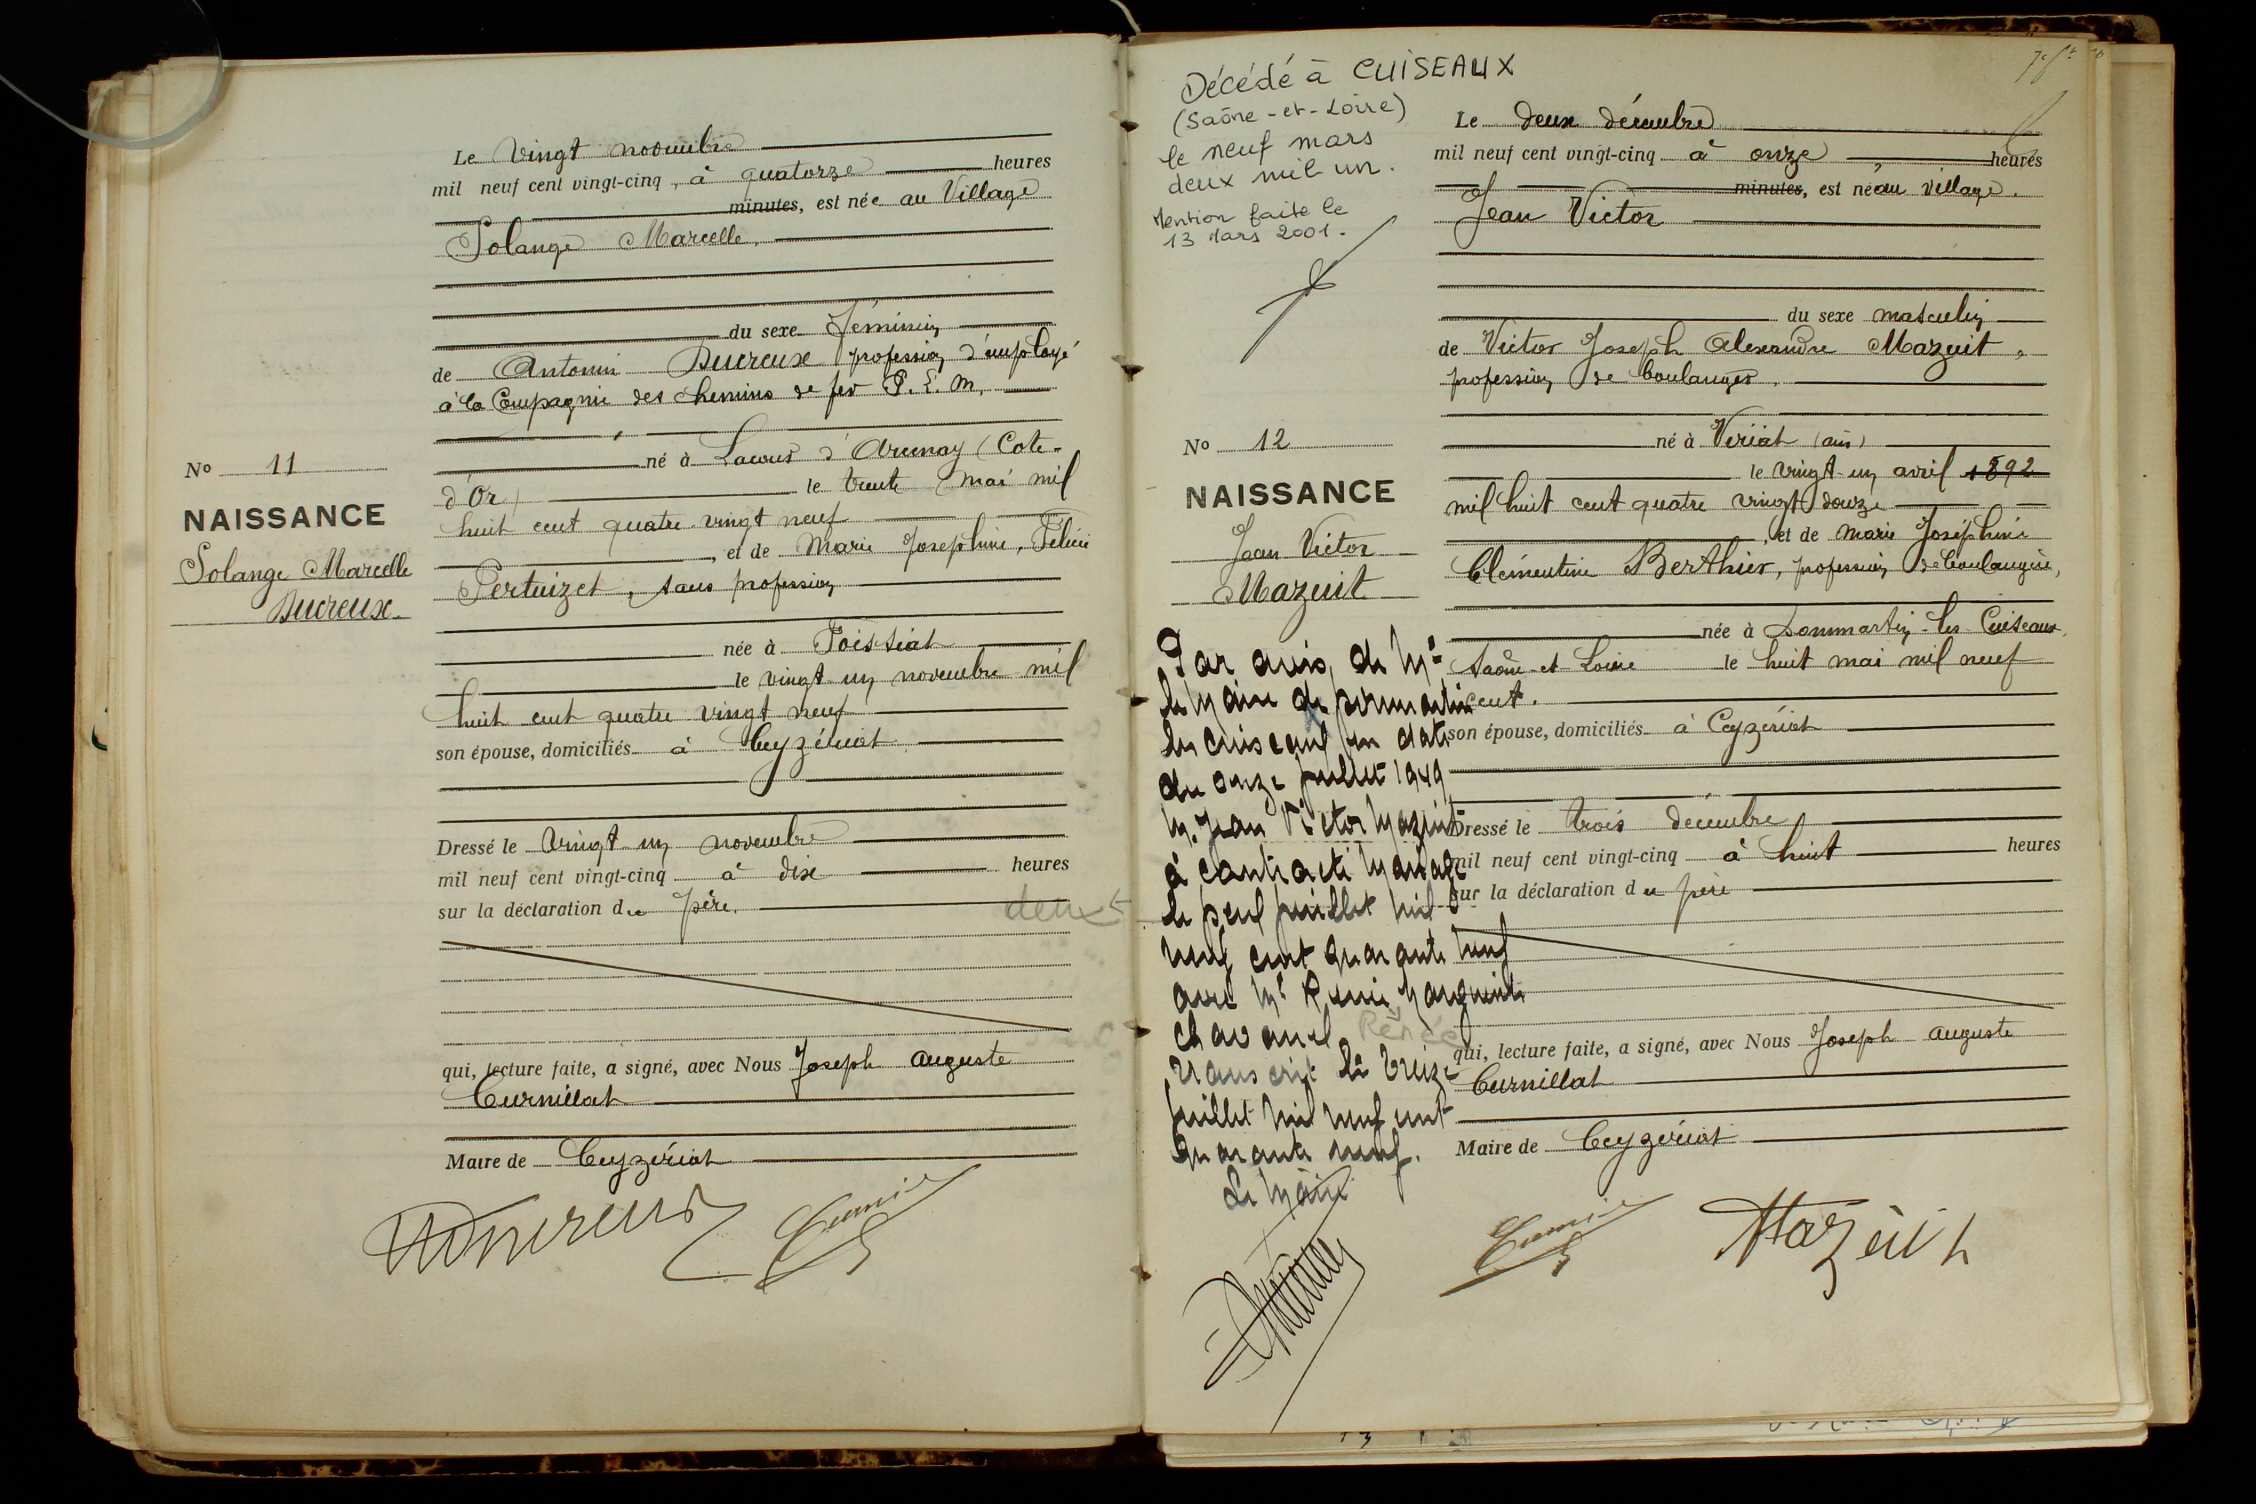 Le Vingt novembre
mil neuf cent vingt-cinq, à quatorze heures
minutes, est née au Village
Solange Marcelle,
du sexe féminin
de Antonin Ducreux profession d'employé
à la Compagnie des chemins de fer P. L. M.
né à Lacour d'Arcenay (Cote-
d'Or) le trente mai mil
huit cent quatre-vingt neuf
, et de Marie Josephine, Félicie
Pertuizet, sans profession
née à Poissiat
le vingt un novembre mil
huit cent quatre vingt neuf
son épouse, domiciliés à Ceyzériat
Dressé le vingt un novembre
mil neuf cent vingt-cinq à dix heures
sur la déclaration du père.
qui, lecture faite, a signé, avec Nous Joseph Auguste
Curnillat
Maire de Ceyzériat
No 11
NAISSANCE
Solange Marcelle
Ducreux
Décédé à CUISEAUX
(Saône-et-Loire)
le neuf mars
deux mil un.
Mention faite le
13 Mars 2001.
No 12
NAISSANCE
Jean Victor
Mazuit
Par avis de Mr
le Maire de Dommartin
les Cuiseaux en date
du onze juillet 1949
M. Jean Victor Mazuit
a contracté mariage
le neuf juillet mil
neuf cent quarante neuf
avec Mlle Renée Marguerite
Chavanel Renée
Transcrit le treize
juillet mil neuf cent
quarante neuf.
Le Maire
Le deux décembre
mil neuf cent vingt-cinq à onze heures
minutes, est né au village.
Jean Victor
du sexe masculin
de Victor Joseph Alexandre Mazuit,
profession de boulanger,
né à Viriat (ain)
le vingt-un avril 1892
mil huit cent quatre vingt douze
, et de Marie Joséphine
Clémentine Berthier, profession de boulangère,
née à Dommartin-les-Cuiseaux,
Saône et Loire le huit mai mil neuf
cent.
son épouse, domiciliés à Ceyzériat
Dressé le trois décembre
mil neuf cent vingt-cinq à huit heures
sur la déclaration du père
qui, lecture faite, a signé, avec Nous Joseph Auguste
Curnillat
Maire de Ceyzériat
Mazuit